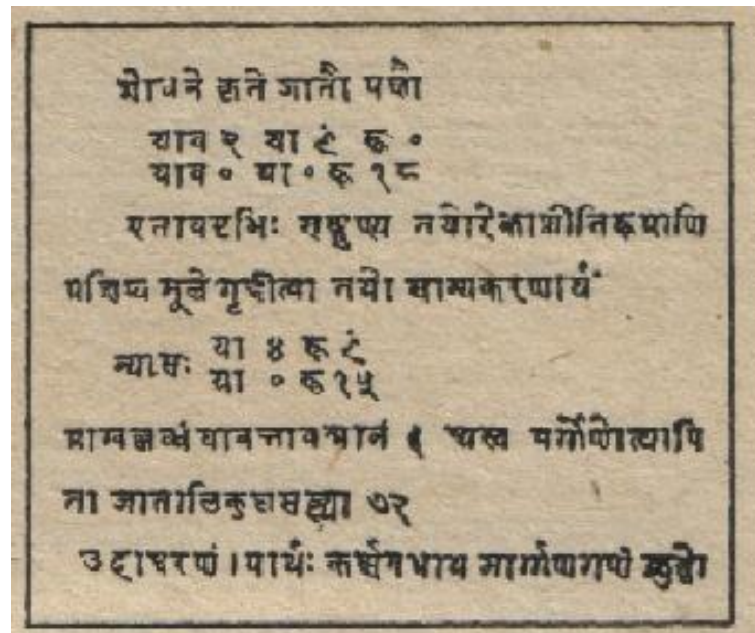 शोधने कृते जातौ पक्षौ
याव २ या ९ं रू ०
याव ० या ० रू १८
एतावष्टभिः सङ्गुण्य तयोरेकाशीतिरूपाणि
प्रक्षिप्य मूले गृहीत्वा तयो साम्यकरणार्थं
न्यासः या ४ रू ९ं
या ० रू १५
प्राग्वल्लब्धं यावत्तावन्मानं ६ अस्य वर्गेणोत्थापि
ता जातालिकुलसङ्ख्या ७२
उदाहरणं । पार्थः कर्णवधाय मार्गणगणं क्रुद्धो